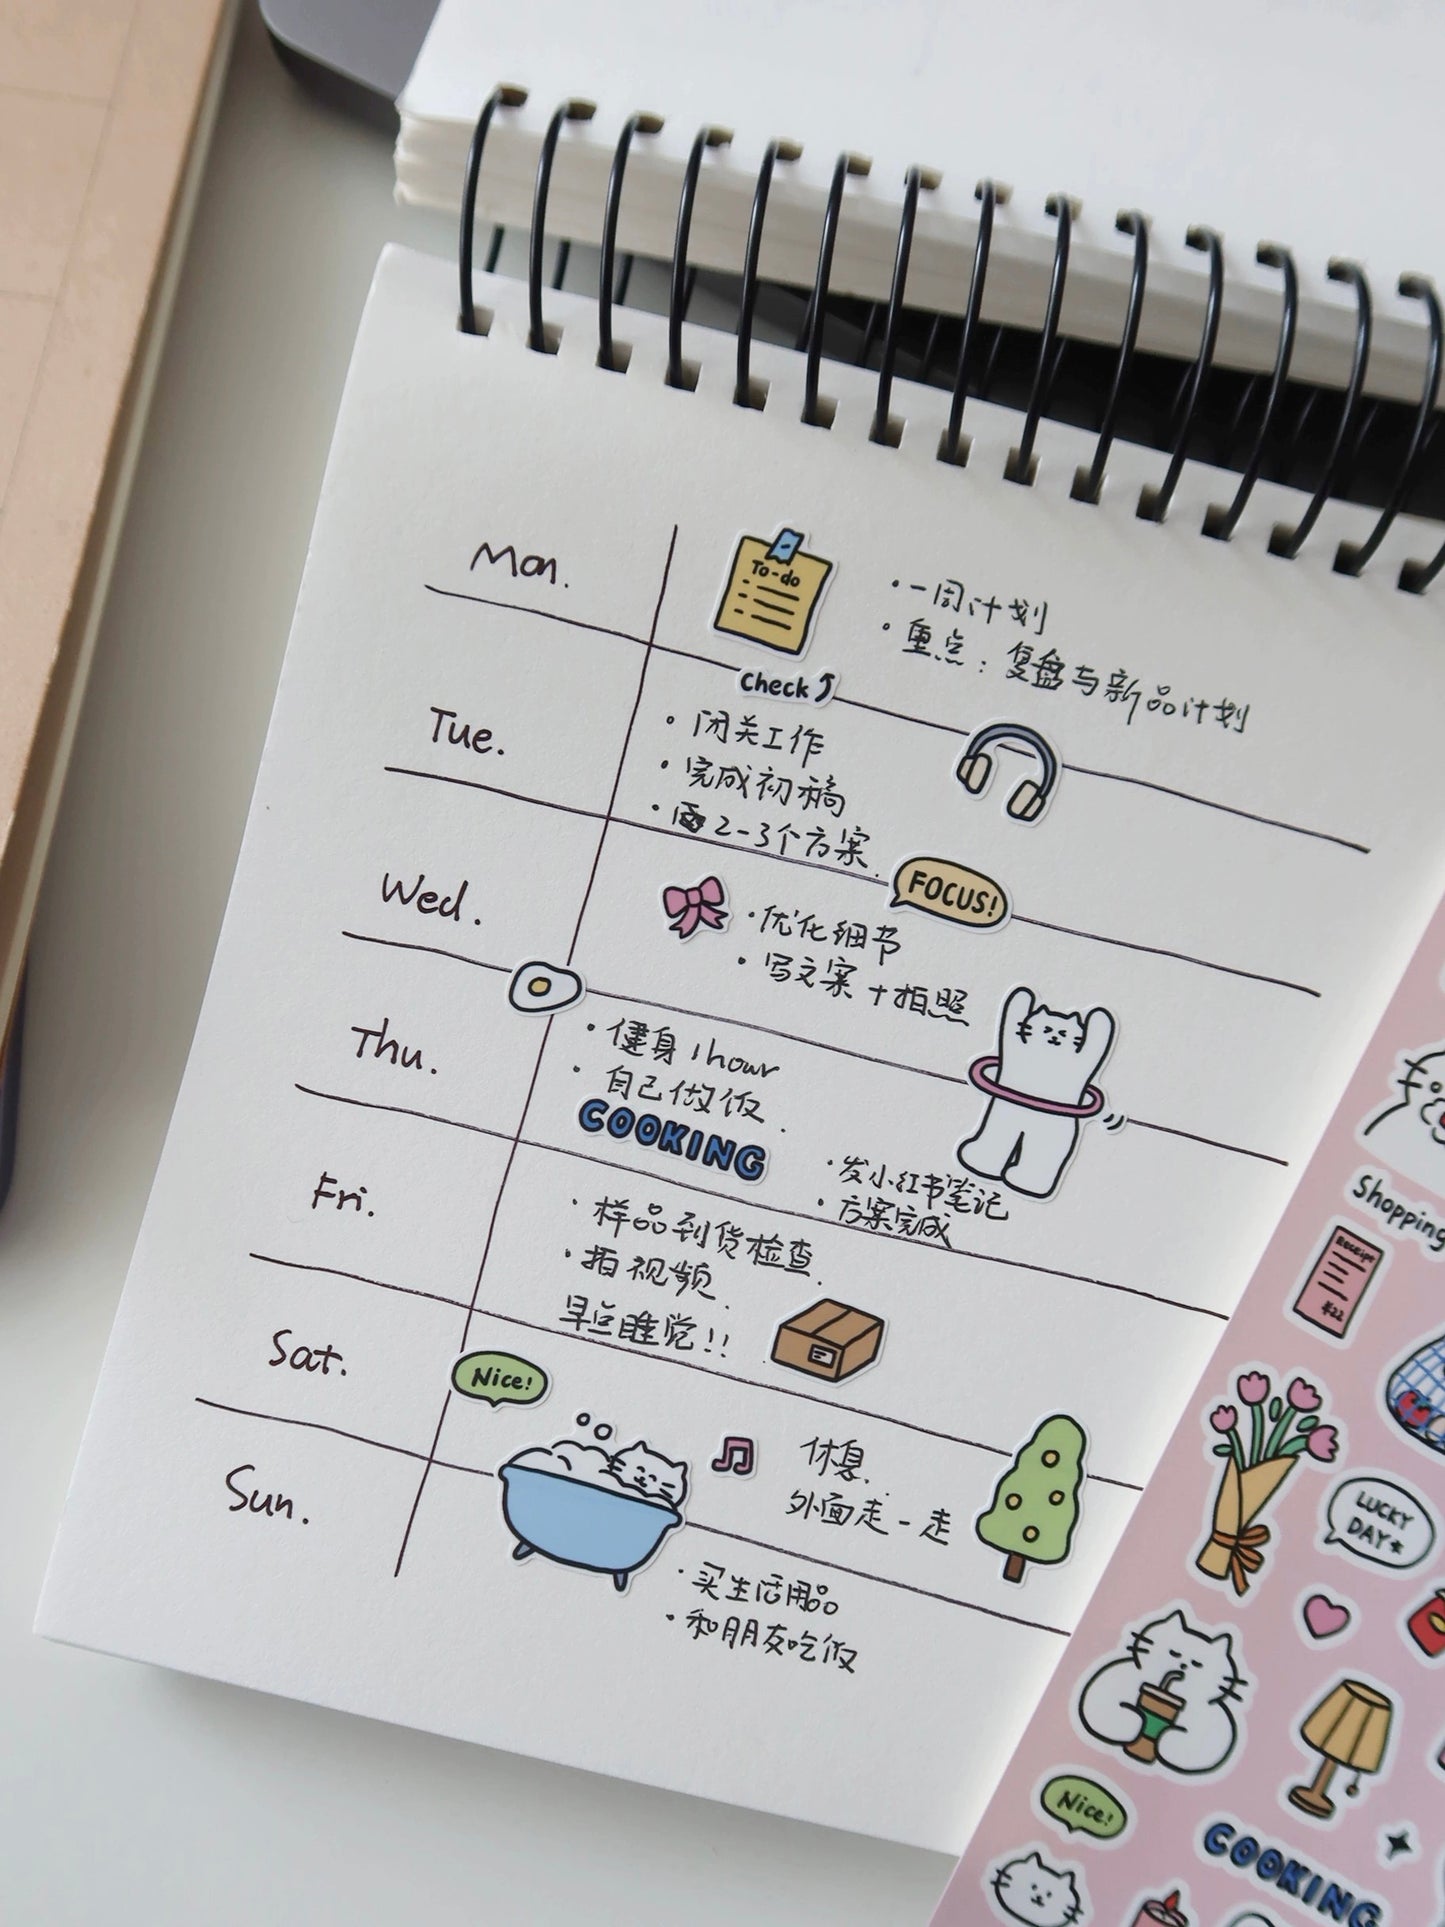 Mon.
To-do
·一周计划
·重点：复盘与新品计划
Check
Tue.
·闭关工作
·完成初稿
·2-3个方案.
FOCUS!
Wed.
·优化细节
·写文案+拍照
Thu.
·健身1hour
·自己做饭.
COOKING
·发小红书笔记
·方案完成
Fri.
·样品到货检查.
·拍视频.
早点睡觉!!
Sat.
Nice!
休息.
外面走一走
Sun.
·买生活用品
·和朋友吃饭
Shopping
RECEIPT
LUCKY
DAY*
Nice!
COOKING